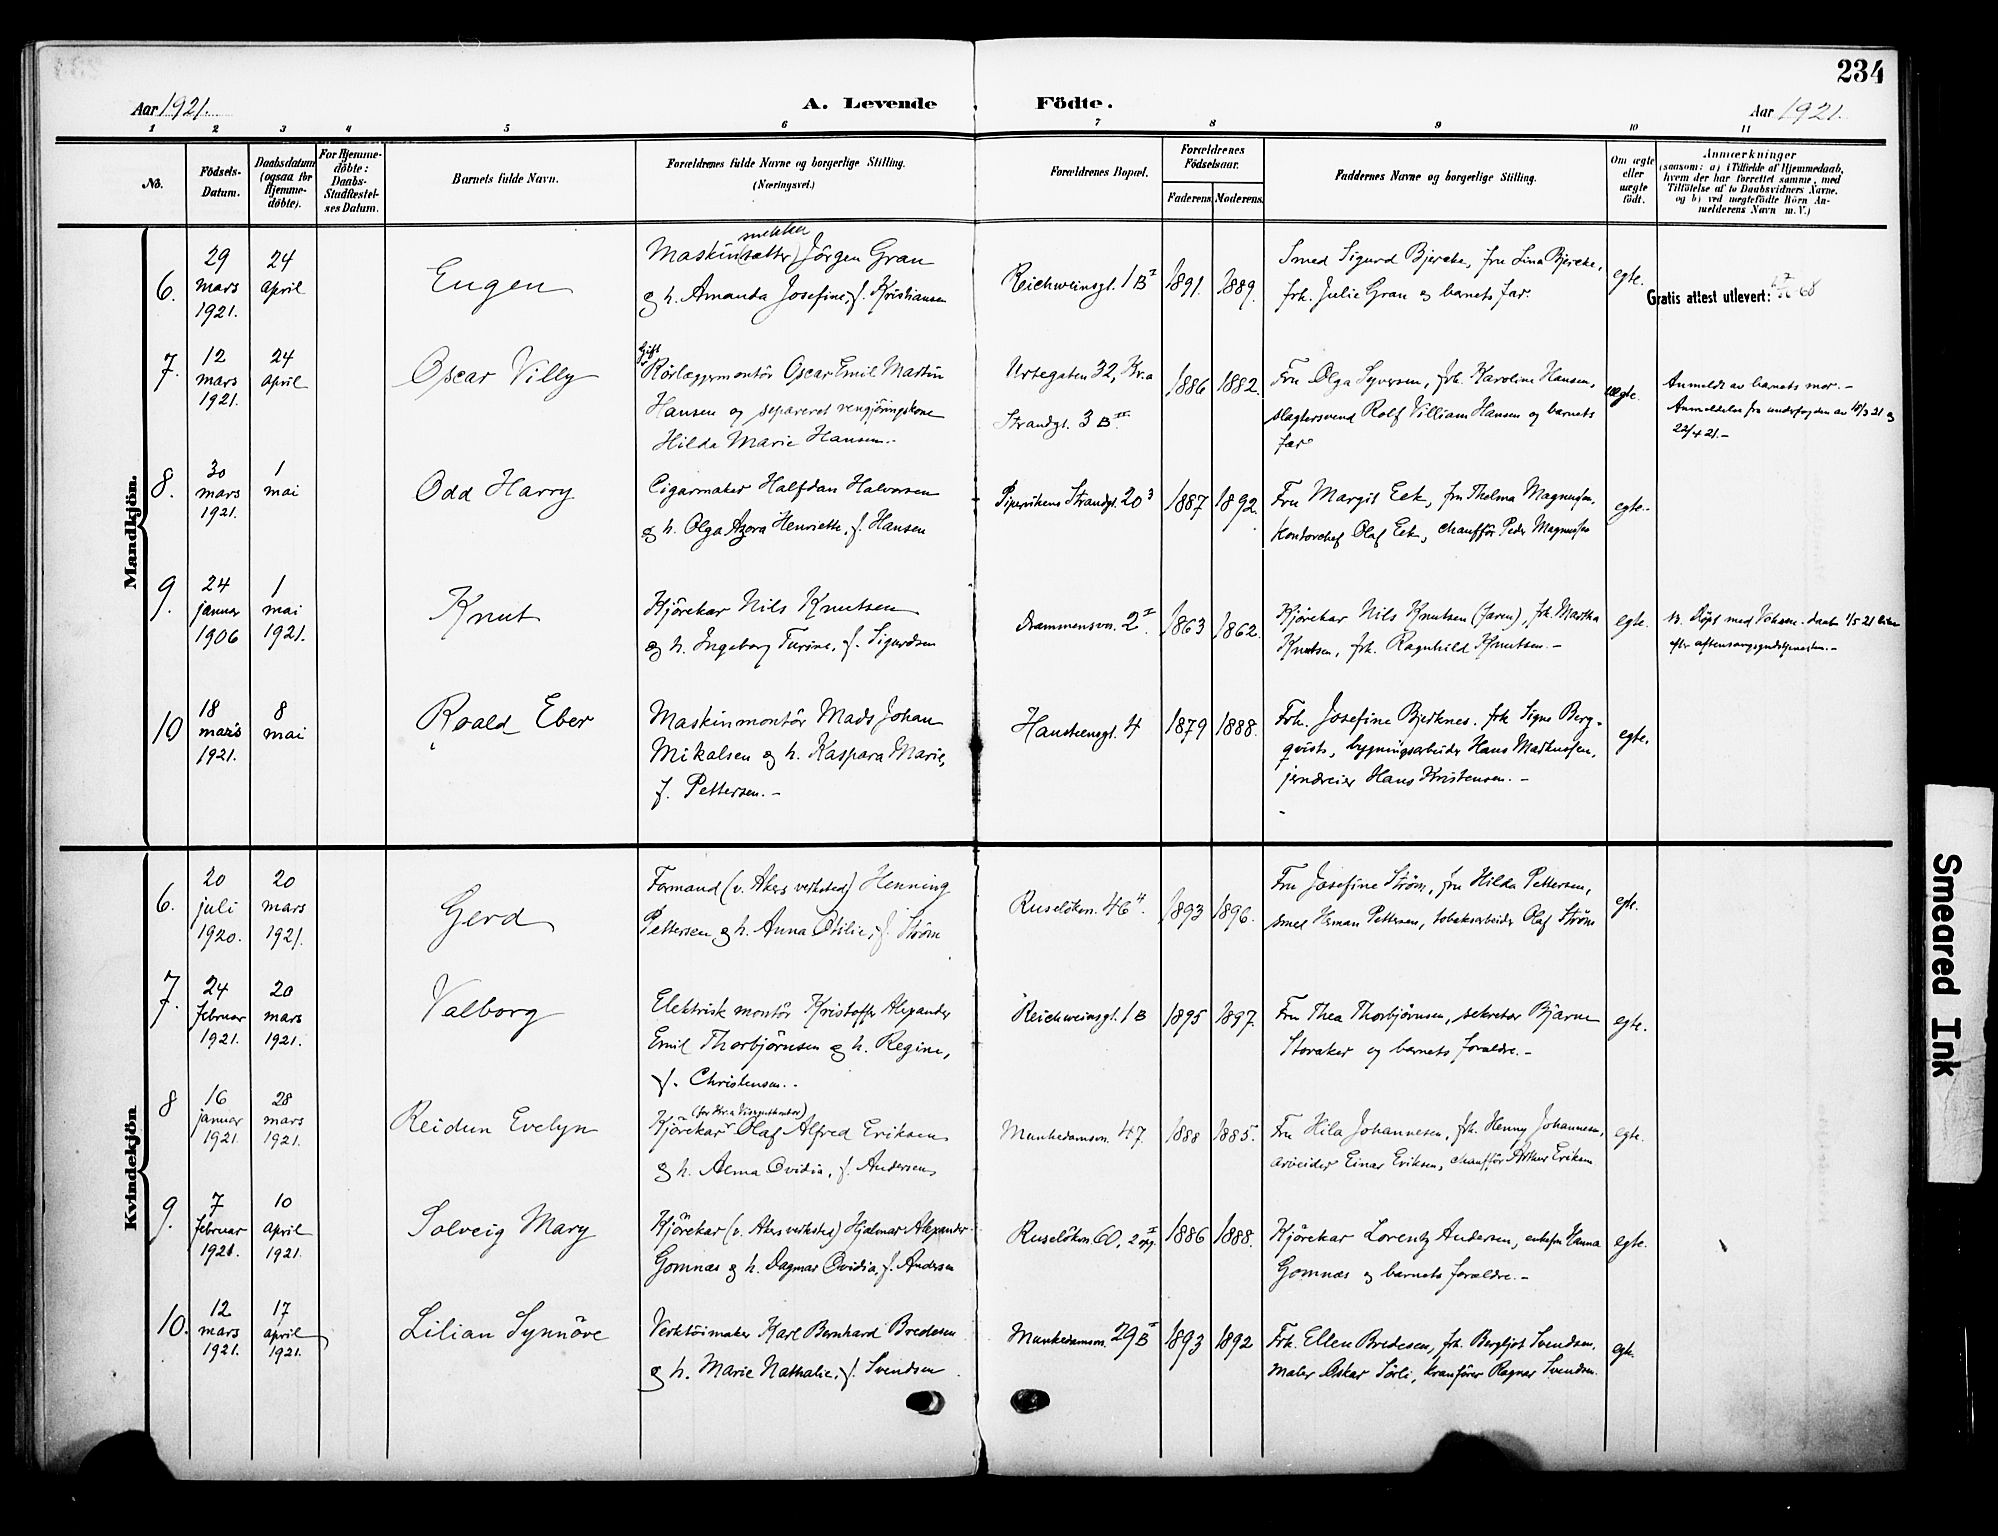 234
Aar 1921.
A. Levende Födte.
Aar 1921.
1 2 3 4 5 6 7 8 9 10 11
No.
Födsels-Datum.
Daabsdatum (ogsaa for Hjemme-döbte).
For Hjemme-döbte: Daabs-Stadfæstel-ses Datum.
Barnets fulde Navn.
Forældrenes fulde Navne og borgerlige Stilling.
(Næringsvei.)
Forældrenes Bopæl.
Forældrenes Födselsaar.
Faderens. Moderens.
Faddernes Navne og borgerlige Stilling.
Om ægte eller uægte födt.
Anmærkninger
(saasom: a) i Tilfælde af Hjemmedaab, hvem der har forrettet samme, med Tilföielse af to Daabsvidners Navne, og b) ved uægtefödte Börn An-melderens Navn m. V.)
Mandkjön.
6. 29 mars 1921. 24 april Eugen
snekker
Maskin(sætter) Jörgen Gran
& h. Amanda Josefine, f. Kristiansen
Reichweinsgt. 1 B I 1891. 1889.
Smed Sigurd Bjercke, fru Lina Bjercke,
frk. Julie Gran og barnets far.
egte.
Gratis attest utlevert:
7. 12 mars 1921. 24 april Oscar Villy
Gift
Rörlæggermontör Oscar Emil Martin
Hansen og separeret rengjöringskone
Hilda Marie Hansen.-
Urtegaten 32, Kr.a
Strandgt. 3 B III
1886 1882.
Fru Olga Syversen, frk. Karoline Hansen,
slagtersvend Rolf Villiam Hansen og barnets
far
uegte.
Anmeldt av barnets mor.-
Anmeldelse fra underfogden av 18/3 21 og
22/4 21.-
8. 30 mars 1921. 1 mai Odd Harry
Cigarmaker Halfdan Halvorsen
& h. Olga Azora Henriette, f. Hansen
Pipervikens Strandgt. 20 3 1887 1892.
Fru Margit Eek, fru Thelma Magnussen,
Kontorchef Olaf Eek, chaufför Peder Magnussen
egte.-
9. 24 januar 1906 1 mai 1921. Knut
Kjörekar Nils Knutsen
& h. Ingeborg Turine, f. Sigurdsen
Drammensvn. 2 I 1863 1862.
Kjörekar Nils Knutsen (faren), frk. Martha
Knutsen, frk. Ragnhild Knutsen.-
egte.
Döpt med Voksen-daab 1/5 21
efter aftensangsgudstjenesten.-
10 18 mars 1921. 8 mai Roald Eber
Maskinmontör Mads Johan
Mikalsen & h. Kaspara Marie,
f. Pettersen.-
Hausteensgt. 4 1879 1888.
Frk. Josefine Bjerknes, frk. Signe Berg-
qvist, bygningsarbeider Hans Mathussen,
jerndreier Hans Kristensen.-
egte.
Kvindekjön.
6. 20 juli 1920. 20 mars 1921. Gerd
Formand (v. Akers verksted) Henning
Pettersen & h. Anna Otilie, f. Ström
Ruselökvn. 46 4. 1893 1896.
Fru Josefine Ström, fru Hilda Pettersen,
smed Herman Pettersen, tobaksarbeider Olaf Ström
egte.
7. 24 februar 1921. 20 mars 1921. Valborg
Elektrisk montör Kristoffer Alexander
Emil Thorbjörnsen & h. Regine,
f. Christensen.
Reichweinsgt. 1 B 1895 1897.
Fru Thea Thorbjörnsen, sekretær Bjarne
Storaker og barnets forældre.-
egte.
8 16 januar 1921. 28 mars 1921. Reidun Evelyn
Kjörekar Olaf Alfred Eriksen
& h. Alma Ovidia, f. Andersen
Munkedamsvn. 47 1888 1885.
Fru Hila Johannesen, frk. Henny Johannesen,
arbeider Einar Eriksen, chaufför Arthur Eriksen
egte.
9. 7 februar 1921. 10 april 1921. Solveig Mary
Kjörekar (v. Akers verksted) Hjalmar Alexander
Gomnæs & h. Dagmar Ovidia, f. Andersen
Ruselökvn 60, 2 opg. I 1886 1888.
Kjörekar Lorentz Andersen, enkefru Hanna
Gomnæs og barnets forældre.-
egte.
10. 12 mars 1921. 17 april 1921. Lilian Synnöve
Verktöimaker Karl Bernhard Bredesen
& h. Marie Nathalie, f. Svendsen
Munkedamsvn. 29 B I 1893 1892
Frk. Ellen Bredesen, frk. Bergljot Svendsen,
maler Oskar Sörli, kranförer Ragnar Svendsen.
egte.
Smeared Ink